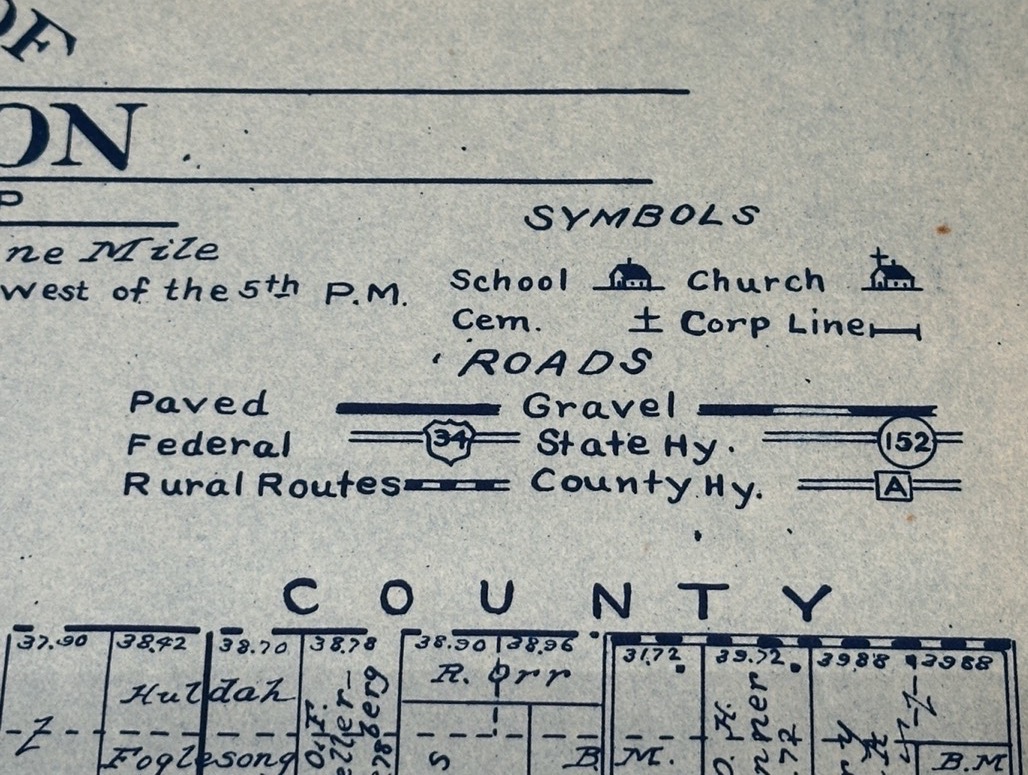 OF
ON
P
ne Mile
west of the 5th P.M.
SYMBOLS
School Church
Cem. Corp Line
ROADS
Paved Gravel
Federal 34 State Hy. 152
Rural Routes County Hy. A
COUNTY
37.90 38.42 38.70 38.78 38.90 38.96 31.72 39.72 39.88 39.88
R. Orr
Huldah
Z
Foglesong
S B. M.
B.M